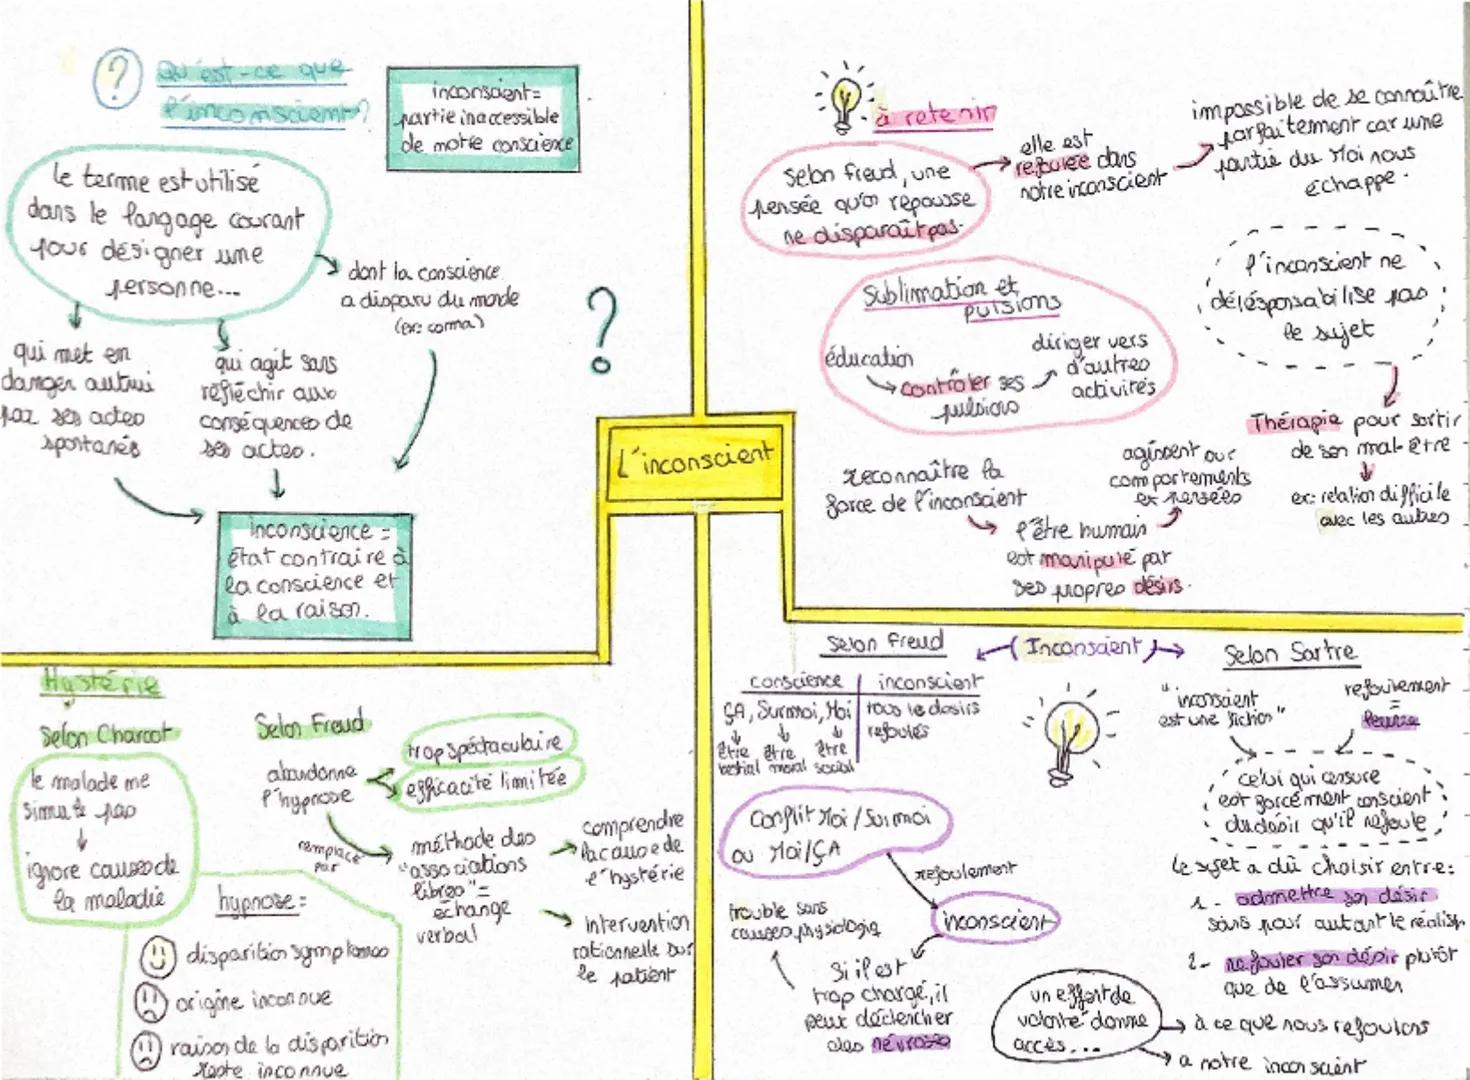 ?
Qu'est-ce que
l'inconscient?
inconscient=
partie inaccessible
de notre conscience
le terme est utilisé
dans le langage courant
pour désigner une
personne...
dont la conscience
a disparu du monde
(ex: coma)
qui met en
danger autrui
par ses actes
spontanés
qui agit sans
réfléchir aux
conséquences de
ses actes.
?
inconscience =
état contraire à
la conscience et
à la raison.
L'inconscient
à retenir
Selon freud, une
pensée qu'on repousse
ne disparaît pas.
elle est
refoulée dans
notre inconscient
impossible de se connaître
parfaitement car une
partie du Moi nous
échappe.
Sublimation et
pulsions
éducation
contrôler ses
pulsions
diriger vers
d'autres
activités
l'inconscient ne
déresponsabilise pas
le sujet
Thérapie pour sortir
de son mal-être
ex: relation difficile
avec les autres
reconnaître la
force de l'inconscient
l'être humain
est manipulé par
ses propres désirs.
agissent sur
comportements
et pensées
Hystérie
Selon Charcot
le malade me
simule pas
ignore causes de
la maladie
hypnose =
disparition symptomes
origine inconnue
raison de la disparition
reste inconnue
Selon Freud
abandonne
l'hypnose
trop spéctaculaire
efficacité limitée
remplacé
par
méthode des
"associations
libres" =
échange
verbal
comprendre
la cause de
l'hystérie
intervention
rationnelle sur
le patient
(Inconscient)
Selon freud
conscience
inconscient
ÇA, Surmoi, Moi
être être être
bestial moral social
tous les desirs
refoulés
Conflit Moi / Surmoi
ou Moi/ÇA
refoulement
inconscient
Si il est
trop chargé, il
peut déclencher
des névroses
trouble sans
causes physiologiq
Selon Sartre
"inconscient
est une fiction"
refoulement
=
celui qui censure
est forcément conscient
du désir qu'il refoule
Le sujet a dû choisir entre:
1 - admettre son désir
sans pour autant le réalisr
2 - refouler son désir plutôt
que de l'assumer
un effort de
volonté donne
accès...
à ce que nous refoulons
a notre inconscient